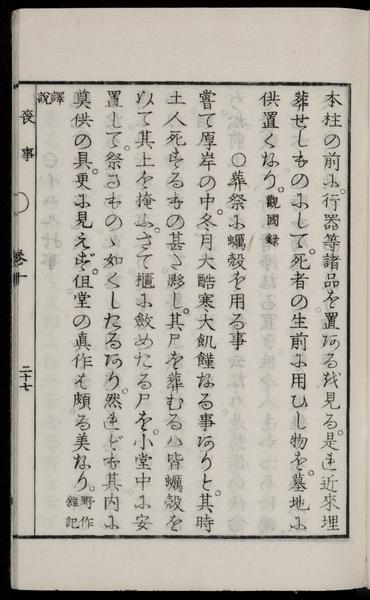 本柱の前に行器等諸品を置ある越見る。是も近來埋
葬せしものにして。死者の生前に用ひし物を。墓地に
供置くなり。觀國錄
〇葬祭に蠣殼を用る事
嘗て厚岸の中。冬月大酷寒大飢饉なる事ありと。其時
土人死するもの甚だ夥し。其尸を葬むるハ皆蠣殼を
以て其上を掩ふ。さて櫃に斂めたる尸を。小堂中に安
置して。祭るもの又如くしたるあり。然れども其内に
奠供の具。更に見えず。但堂の眞作も頗る美なり。野作雜記
譯說
喪事
卷一
二十七